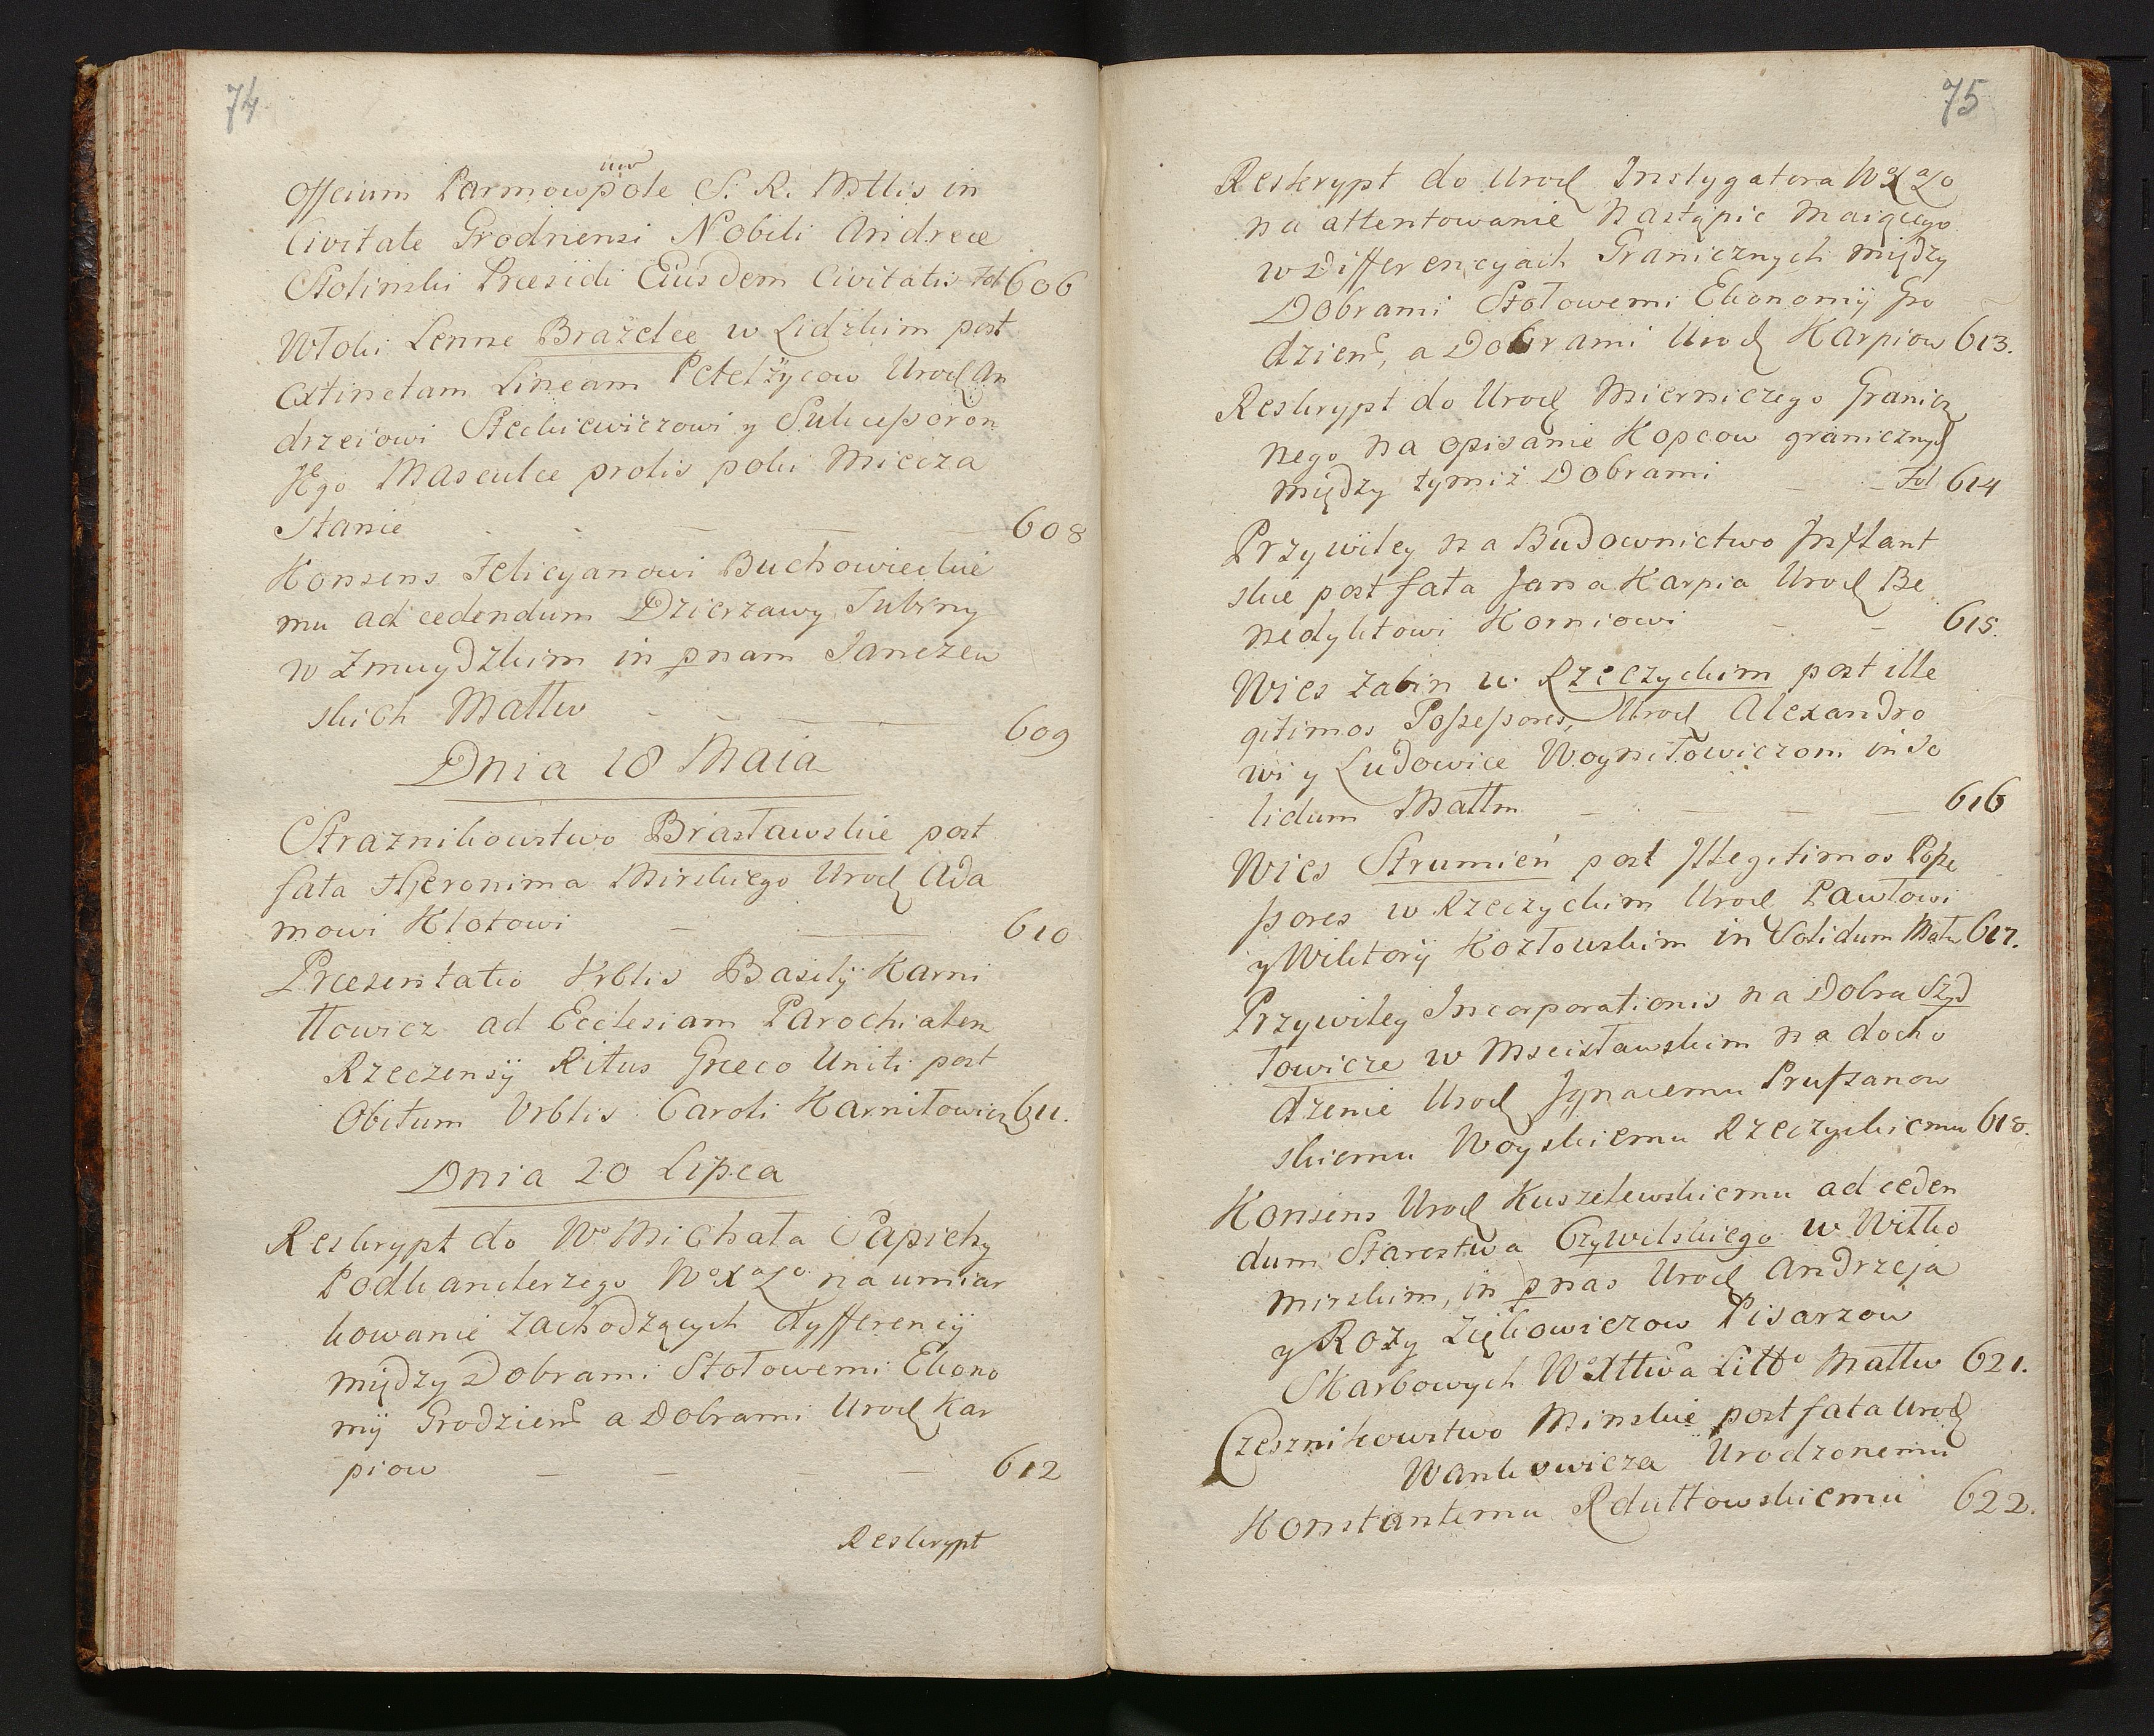 74
Officium Parmowpole S. R. Mttis in
Civitate Grodnensi Nobili Andreæ
Stolinski Præsidi Eiusdem Civitatis Fol 606
Włoki Lenne Brażelce w Lidzkim post
Extinctam Lineam Petelżycow Urod An
drzeiowi Steckiewiczowi y Sukcessorom
JEgo Masculæ prolis poki Mieć za
stanie 608
Konsens Felicyanowi Buchowieckie
mu ad cedendum Dzierzawy Tubiny
w Zmuydzkim in pnam Janczew
skich Mattw 609
Dnia 18 Maia
Straznikowstwo Brasławskie post
fata Hjeronima Mirskiego Urod Ada
mowi Kłotowi 610
Præsentatio Vrblis Basilÿ Karni
łłowicz ad Ecclesiam Parochialem
Rzeczensÿ Ritus Græco Uniti post
Obitum Vrblis Caroli Karniłowicz 611.
Dnia 20 Lipca
Reskrypt do Wo Michała Sapiehy
Podkanclerzego Wo Xa Lo na umiar
kowanie zachodzących dyfferencÿ
między Dobrami Stołowemi Ekono
mÿ Grodzien a Dobrami Urod Kar
piow 612
Reskrypt
75
Reskrypt do Urod Instygatora Wo Xa Lo
na attentowanie nastąpic maiącego
w Differencyach Granicznych między
Dobrami Stołowemi Ekonomÿ Gro
dzien, a Dobrami Urod Karpiow 613.
Reskrypt do Urod Mierniczego Granicz
nego na opisanie Kopcow granicznych
między tymiż Dobrami Fol 614
Przywiley na Budownictwo Inflant
skie post fata Jana Karpia Urod Be
nedyktowi Korniowi 615.
Wies Zabin w Rzeczyckim post ille
gitimos Possessores, Urod Alexandro
wi y Ludowice Woyniłowiczom in So
lidum Mattm 616
Wies Strumień post Illegitimos Posse
ssores w Rzeczyckim Urod Pawłowi
y Wiktorÿ Kozłowskim in Solidum Matw 617.
Przywiley Incorporationis na Dobra Szyd
łowicze w Mscisławskim na docho
dzenie Urod Ignacemu Prusżanow
skiemu Woyskiemu Rzeczyckiemu 618.
Konsens Urod Kuszelewskiemu ad ceden
dum Starostwa Czywilskiego w Wiłko
mirskim, in pnas Urod Andrzeja
y Rozy Ziękowiczow Pisarzow
Skarbowych Wo Xttwa Litto Mattw 621.
Czesznikowstwo Minskie post fata Urod
Wankowicza Urodzonemu
Konstantemu Rdułtowskiemu 622.